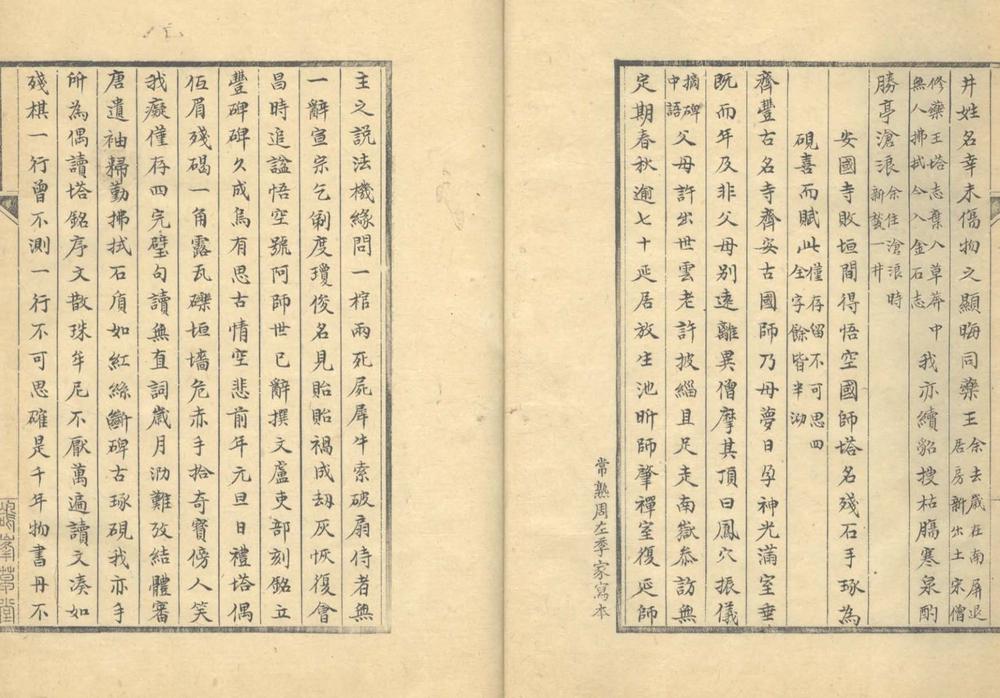 井姓名幸未傷物之顯晦同藥王余去歲在南屏退居房新出土宋僧
修藥王塔志棄八草莽中無人拂拭今入金石志我亦續貂搜枯腸寒泉酌
勝亭滄浪余住滄浪時新甃一井
安國寺敗垣間得悟空國師塔名殘石手琢為
硯喜而賦此僅存留不可思四全字餘皆半泐
齊豐古名寺齊安古國師乃母夢日孕神光滿室垂
既而年及非父母別遠離異僧摩其頂曰鳳穴振儀
摘碑中語父母許出世雲老許披緇且足走南嶽叅訪無
定期春秋逾七十延居放生池昕師肇禪室復延師
常熟周左季家寫本
主之説法機緣問一棺兩死屍犀牛索破扇侍者無
一辭宣宗乞度瓊俊名見貽貽禍成劫灰恢復會
昌時追諡悟空號阿師世已辭撰文盧吏部刻銘立
豐碑碑久成烏有思古情空悲前年元旦日禮塔偶
仾眉殘碣一角露瓦礫垣墻危赤手拾奇寳傍人笑
我癡僅存四完璧句讀無直詞歲月泐難攷結體審
唐遺袖歸勤拂拭石盾如紅絲斷碑古琢硯我亦手
所為偶讀塔銘序文散珠牟尼不厭萬遍讀文湊如
殘棋一行曾不測一行不可思確是千年物書丹不